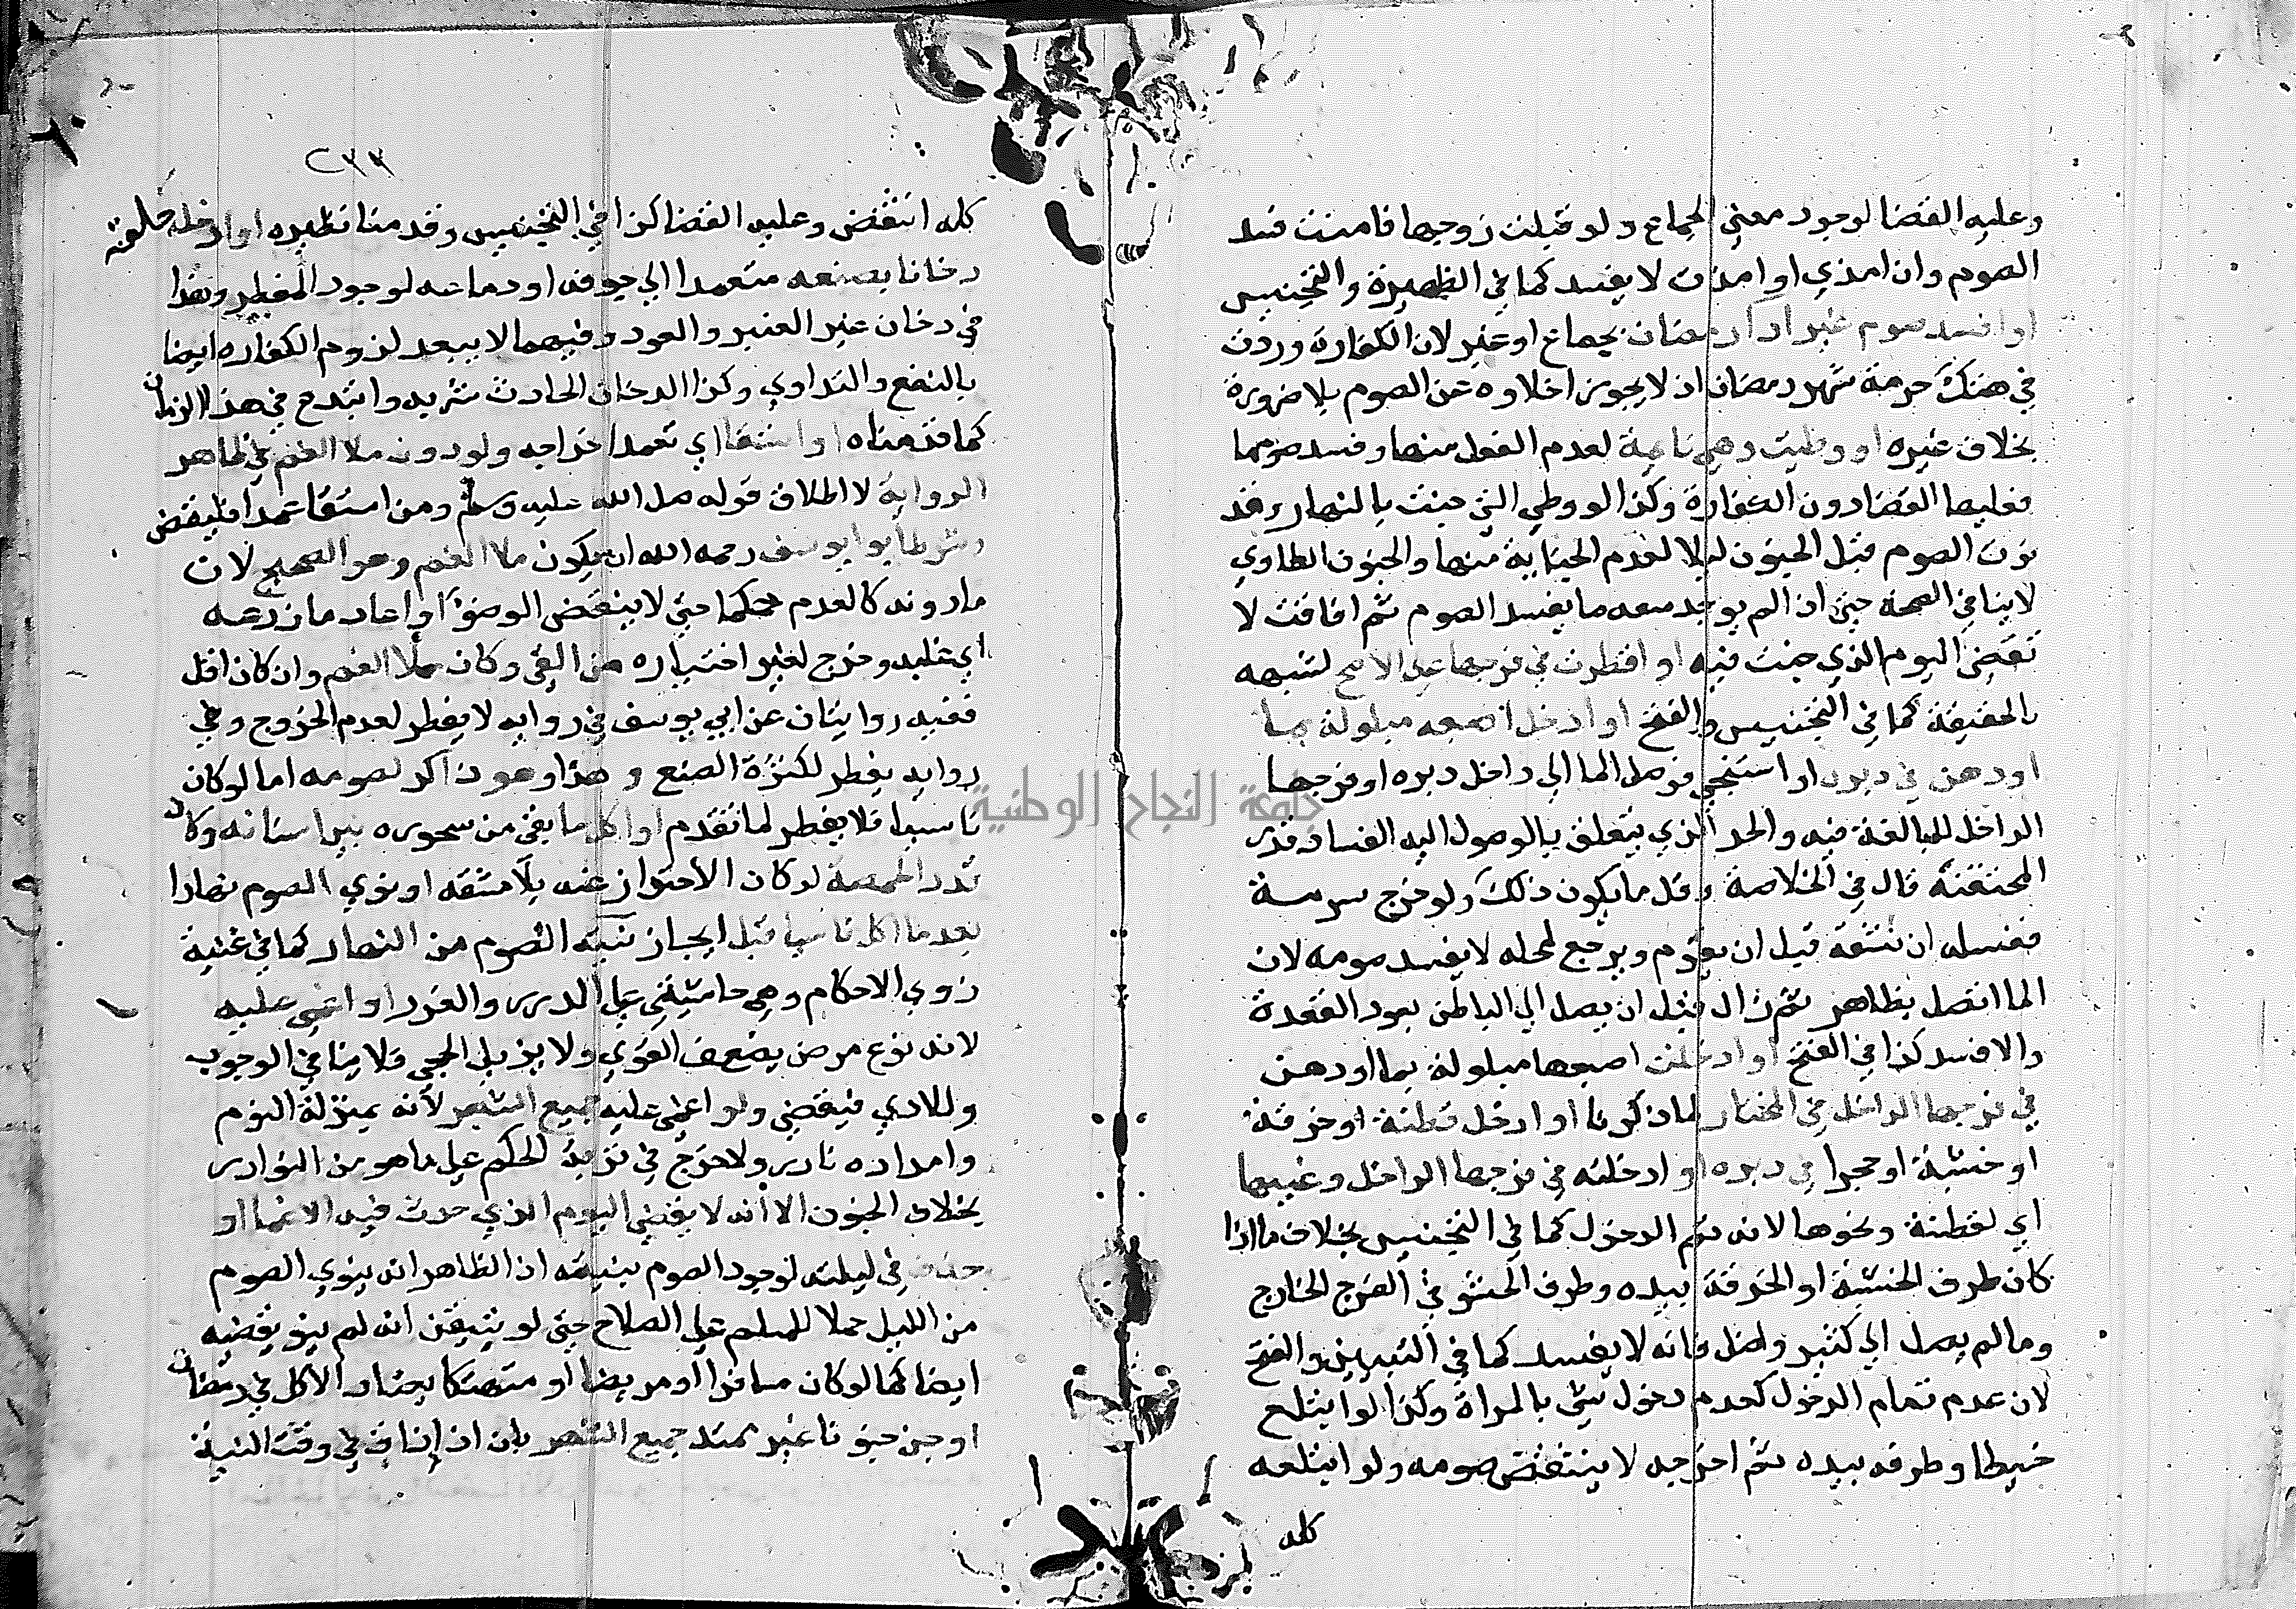 وعليه القضا لوجود معني الجماع ولو قبلت زوجها فامنت فسد
الصوم وان امذي او امذت لا يفسد كما في الظهيرة والتجنيس
او افسد صوم غير ادآ رمضان بجماع او غير لان الكفارة وردت
في هتك حرمة شهر رمضان اذ لا يجوز اخلاوه عن الصوم بلا ضرورة
بخلاف غيره او وطيت وهي نايمة لعدم الفعل منها وفسد صومها
فعليها القضا دون الكفارة وكذا لو وطي التي جنت بالنهار وقد
نوت الصوم قبل الجنون ليلا لعدم الجناية منها والجنون الطاوي
لا ينافي الصحة حتي اذا لم يوجد معه ما يفسد الصوم ثم افاقت لا
تقضي اليوم الذي جنت فيه او اقطرت في فرجها علي الاصح لشبهه
بالحقيقة كما في التجنيس والفتح او ادخل اصبعه مبلولة بما
او دهن في دبره او استنجي فوصل الما الي داخل دبره او فرجها
الداخل للمبالغة فيه والحد الذي يتعلق بالوصول اليه الفساد قدر
المحتقنة قال في الخلاصة وقل ما يكون ذلك ولو خرج سرمه
فغسله ان نشفه قبل ان يقوم ويرجع لمحله لا يفسد صومه لان
الما اتصل بظاهر ثم زال قبل ان يصل الي الباطن بعود المقعدة
والا فسد كذا في الفتح او ادخلت اصبعها مبلولة بما او دهن
في فرجها الداخل في المختار لما ذكرنا او ادخل قطنة او خرقة
او خشبة او حجرا في دبره او ادخلته في فرجها الداخل وغيبها
اي لقطنة ونحوها لانه تم الدخول كما في التجنيس بخلاف ما اذا
كان طرف الخشبة او الخرقة بيده وطرف الحشو في الفرج الخارج
وما لم يصل الي كثير داخل فانه لا يفسد كما في التبيين والفتح
لان عدم تمام الدخول كعدم دخول شي بالمراة وكذا لو ابتلع
خيطا وطرفه بيده ثم اخرجه لا ينتقض صومه ولو ابتلعه
كله
٢٣٣
كله انتقض وعليه القضا كذا في التجنيس وقد منا نظيره او ادخل حلقه
دخانا بصنعه متعمدا الي جوفه او دماغه لوجود المفطر وهذا
في دخان غير العنبر والعود وفيهما لا يبعد لزوم الكفاره ايضا
بالنفع والتداوي وكذا الدخان الحادث شربه وابتدع في هذا الزمان
كما قدمناه او استقا اي تعمد اخراجه ولو دون ملا الفم في ظاهر
الرواية لاطلاق قوله صل الله عليه وسلم ومن استقا عمدا فليقض
وشرط ابو يوسف رحمه الله ان يكون ملا الفم وهو الصحيح لان
ما دونه كالعدم حكما حتي لا ينقض الوضوء او اعاد ما ذرعه
اي غلبه وخرج لغير اختياره من القي وكان ملا الفم وان كان اقل
ففيه روايتان عن ابي يوسف في روايه لا يفطر لعدم الخروج وفي
روايه يفطر لكثرة الصنع وهذا وهو ذاكر لصومه اما لو كان
ناسيا فلا يفطر لما تقدم او اكل ما بقي من سحوره بين اسنانه وكان
قدر الحمصة لو كان الاحتراز عنه بلا مشقه او نوي الصوم نهارا
بعد ما اكل ناسيا قبل ايجاز نيته الصوم من النهار كما في غنية
ذوي الاحكام وهي حاشيتي علي الدرر والغرر او اغمي عليه
لانه نوع مرض يضعف القوي ولا يزيل الحجي فلا ينافي الوجوب
وللادي فيقضي ولو اغمي عليه جميع الشهر لانه بمنزلة النوم
وامداده نادر ولا حرج في ترتيب الحكم علي ما هو من النوادر
بخلاف الجنون الا انه لا يقضي اليوم الذي حدث فيه الاغما او
حدث في ليلته لوجود الصوم بنيته اذ الظاهر انه ينوي الصوم
من الليل حملا للمسلم علي الصلاح حتي لو تيقن انه لم ينو يقضيه
ايضا كما لو كان مسافرا او مريضا او متهتكا يعتاد الاكل في رمضان
او جن جنونا غير ممتد جميع الشهر بان افاق في وقت النية
جامعة النجاح الوطنية